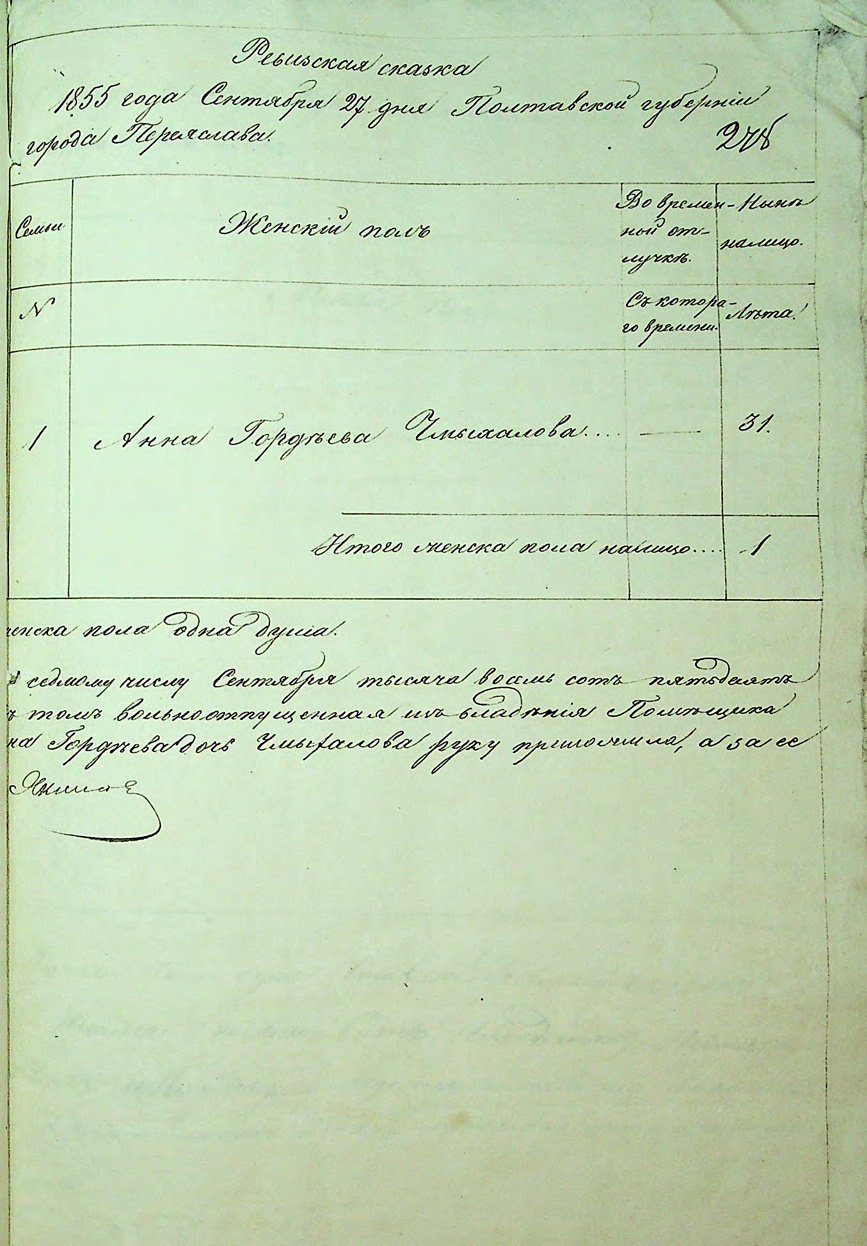 Ревизская сказка
1855 года Сентября 27 дня Полтавской губерніи
города Переяслава.
278
Семьи
Женскій полъ
Во времен-
ной от-
лучкѣ.
Нынѣ
налицо.
N
Съ котора-
го времени.
Лѣта.
1
Анна Гордѣева Чмыхалова....
31.
Итого женска пола налицо....
1
женска пола одна душа.
седмому числу Сентября тысяча восемь сотъ пятьдеятъ
томъ вольноотпущенная изъ владѣнія Помѣщика
на Гордѣева дочь Чмыхалова руку приложила, а за ее